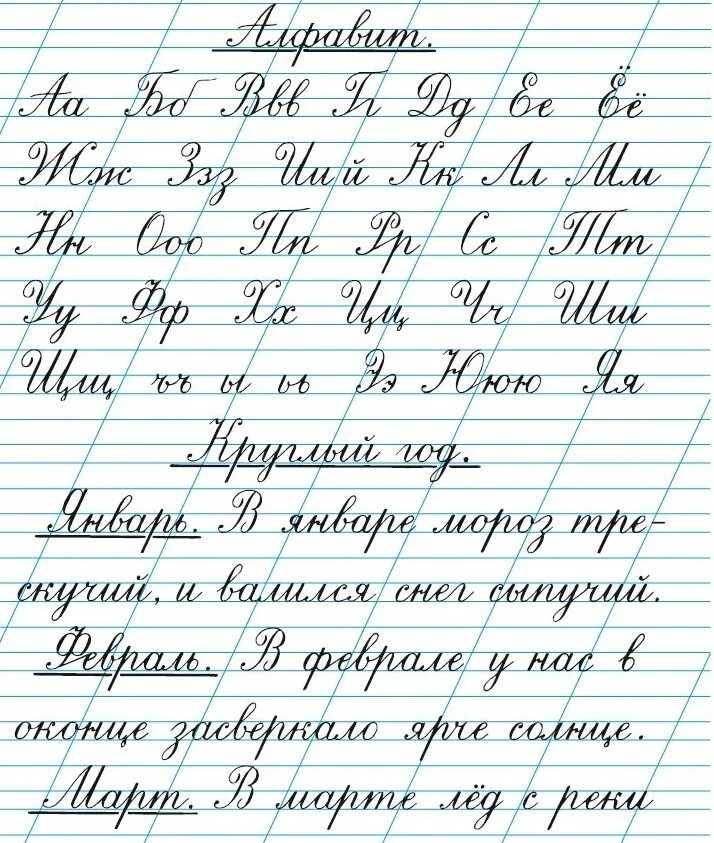 Алфавит.
Аа Бб Ввв Гг Дд Ее Ёё
Жж Ззз Ии й Кк Лл Мм
Нн Ооо Пп Рр Сс Тт
Уу Фф Хх Цц Чч Шш
Щщ ъъ ы ьь Ээ Ююю Яя
Круглый год.
Январь. В январе мороз тре-
скучий, и валился снег сыпучий.
Февраль. В феврале у нас в
оконце засверкало ярче солнце.
Март. В марте лёд с реки